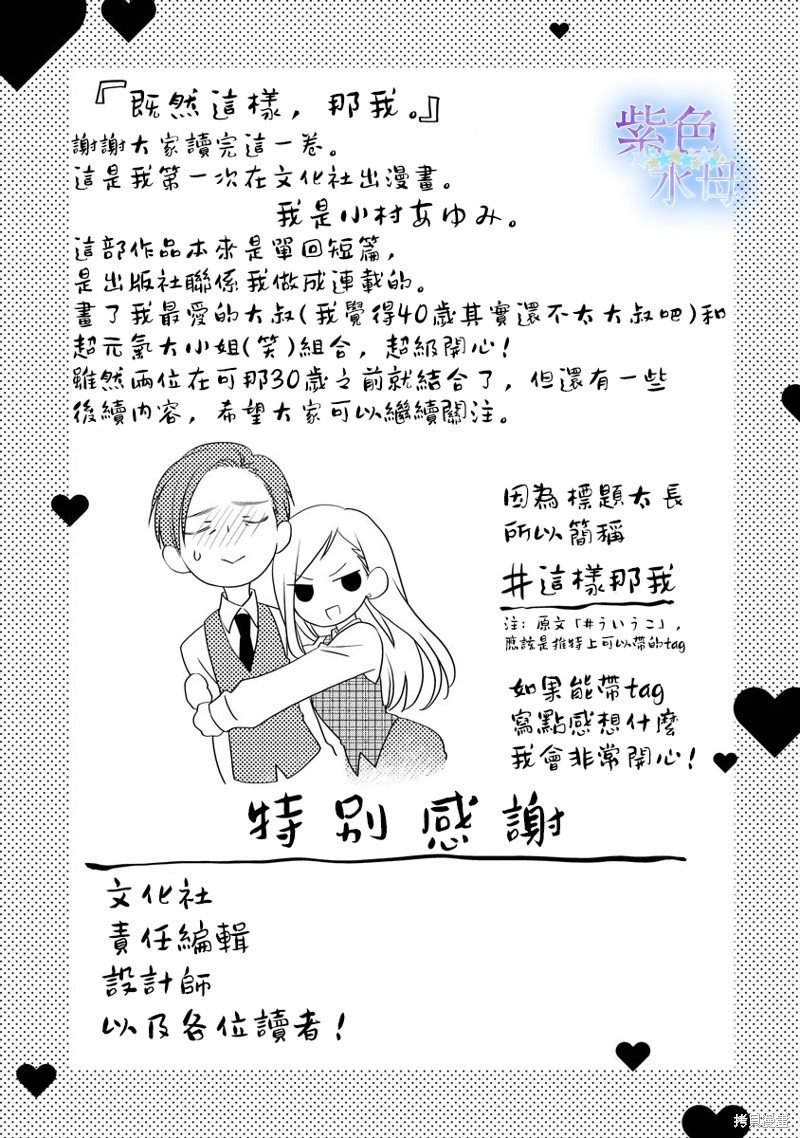 『既然這樣，那我。』
紫色
水母
謝謝大家讀完這一卷。
這是我第一次在文化社出漫畫。
我是小村あゆみ。
這部作品本來是單回短篇，
是出版社聯係我做成連載的。
畫了我最愛的大叔(我覺得40歲其實還不太大叔吧)和
超元氣大小姐(笑)組合，超級開心！
雖然兩位在可那30歲之前就結合了，但還有一些
後續內容，希望大家可以繼續關注。
因為標題太長
所以簡稱
#這樣那我
注：原文「#ういうこ」，
應該是推特上可以帶的tag
如果能帶tag
寫點感想什麼
我會非常開心！
特別感謝
文化社
責任編輯
設計師
以及各位讀者！
拷貝漫畫